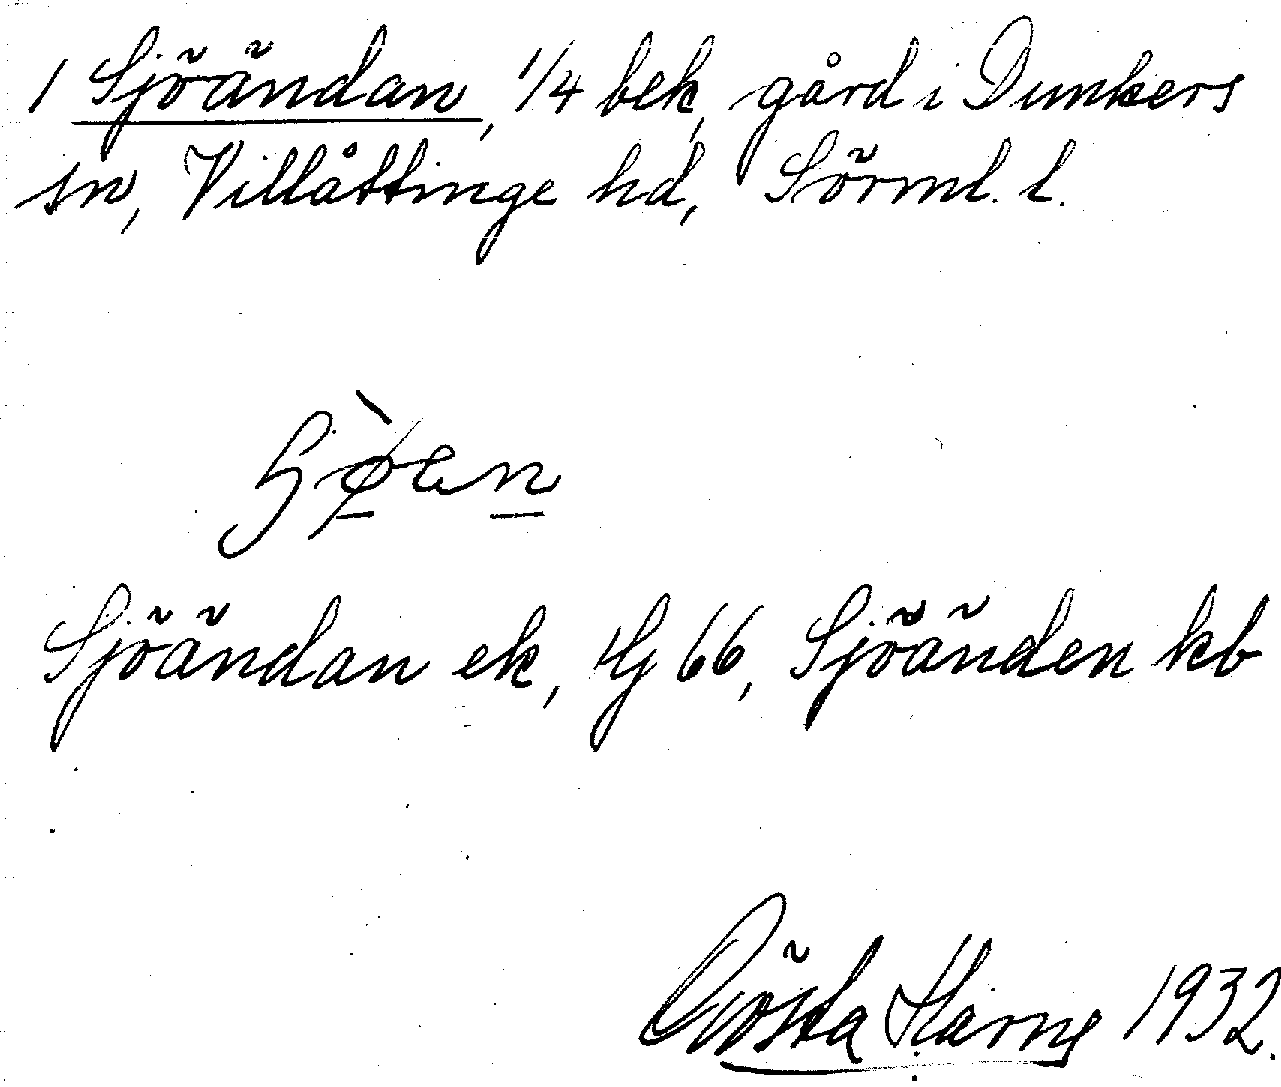 1 Sjöändan, 1/4 bek, gård i Dunkers
sn, Villåttinge hd, Sörml. l.
Sjöändan ek, Hj 66, Sjöänden kb
Gösta Harne 1932.